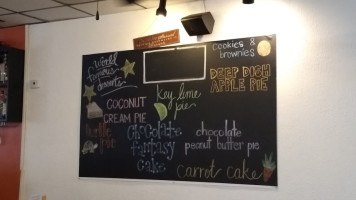 world
famous
desserts
cookies &
brownies
DEEP DISH
APPLE PIE
Key lime
pie
COCONUT
CREAM PIE
turtle
pie
CHOCOLATE
fantasy
cake
chocolate
peanut butter pie
carrot cake